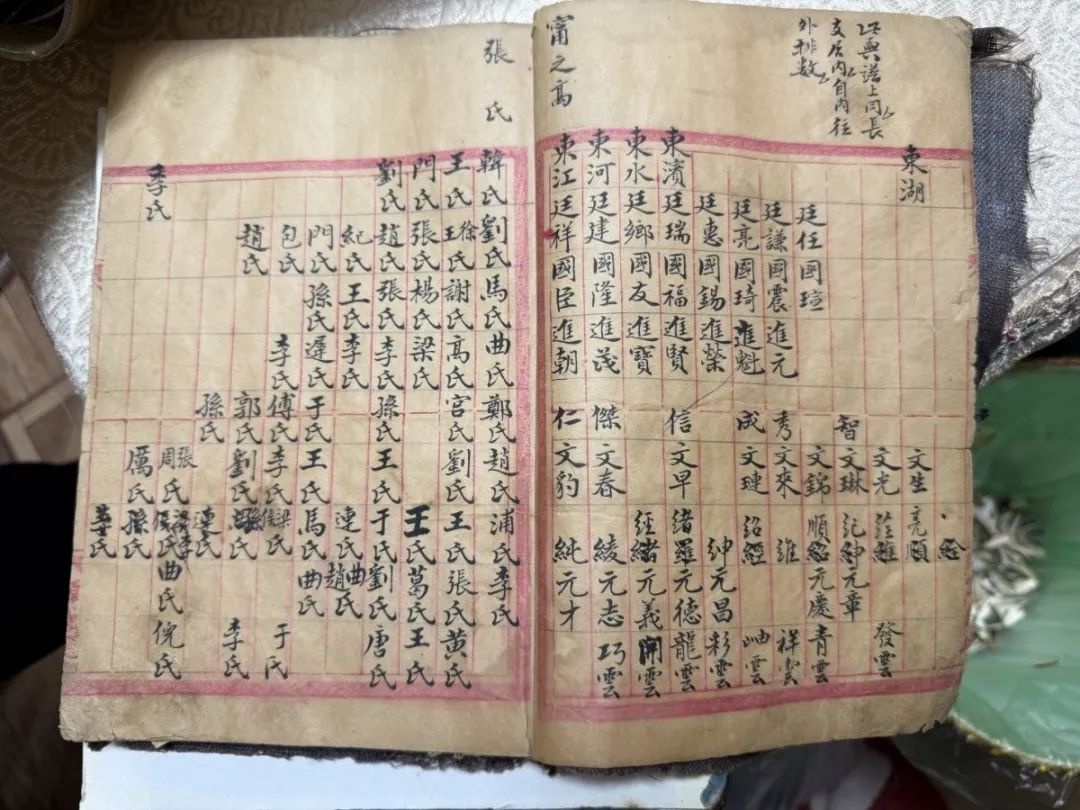 此與譜上同長
支居內自內往
外排數
東湖 文生 亮順
文光 經維 發雲
智 文琳 紀紳 元章
廷任 國瑄 文錦 順紹 元慶 青雲
廷謙 國震 進元 秀 文來 維 祥雲
廷亮 國琦 進魁 成 文璉 紹經 岫雲
廷惠 國錫 進榮 紳 元昌 彩雲
東濱 廷瑞 國福 進賢 信 文早 緒羅 元德 龍雲
東水 廷鄉 國友 進寶 經緒 元義 開雲
東河 廷建 國隆 進茂 傑 文春 綾 元志 巧雲
甯之高 東江 廷祥 國臣 進朝 仁 文豹 純 元才
張氏 韓氏 劉氏 馬氏 曲氏 鄭氏 趙氏 浦氏 李氏
王氏 徐王氏 謝氏 高氏 宮氏 劉氏 王氏 張氏 黄氏
門氏 張氏 楊氏 梁氏 王氏 葛氏 王氏
劉氏 趙氏 張氏 李氏 孫氏 王氏 于氏 劉氏 唐氏
紀氏 王氏 李氏 連氏 曲趙氏
門氏 孫氏 遲氏 于氏 王氏 馬氏 曲氏
包氏 李氏 傅氏 李氏 梁侯氏 于氏
趙氏 郭氏 劉氏 李氏
孫氏 連氏
張周氏 曲氏 倪氏
季氏 厲氏 孫氏
李氏